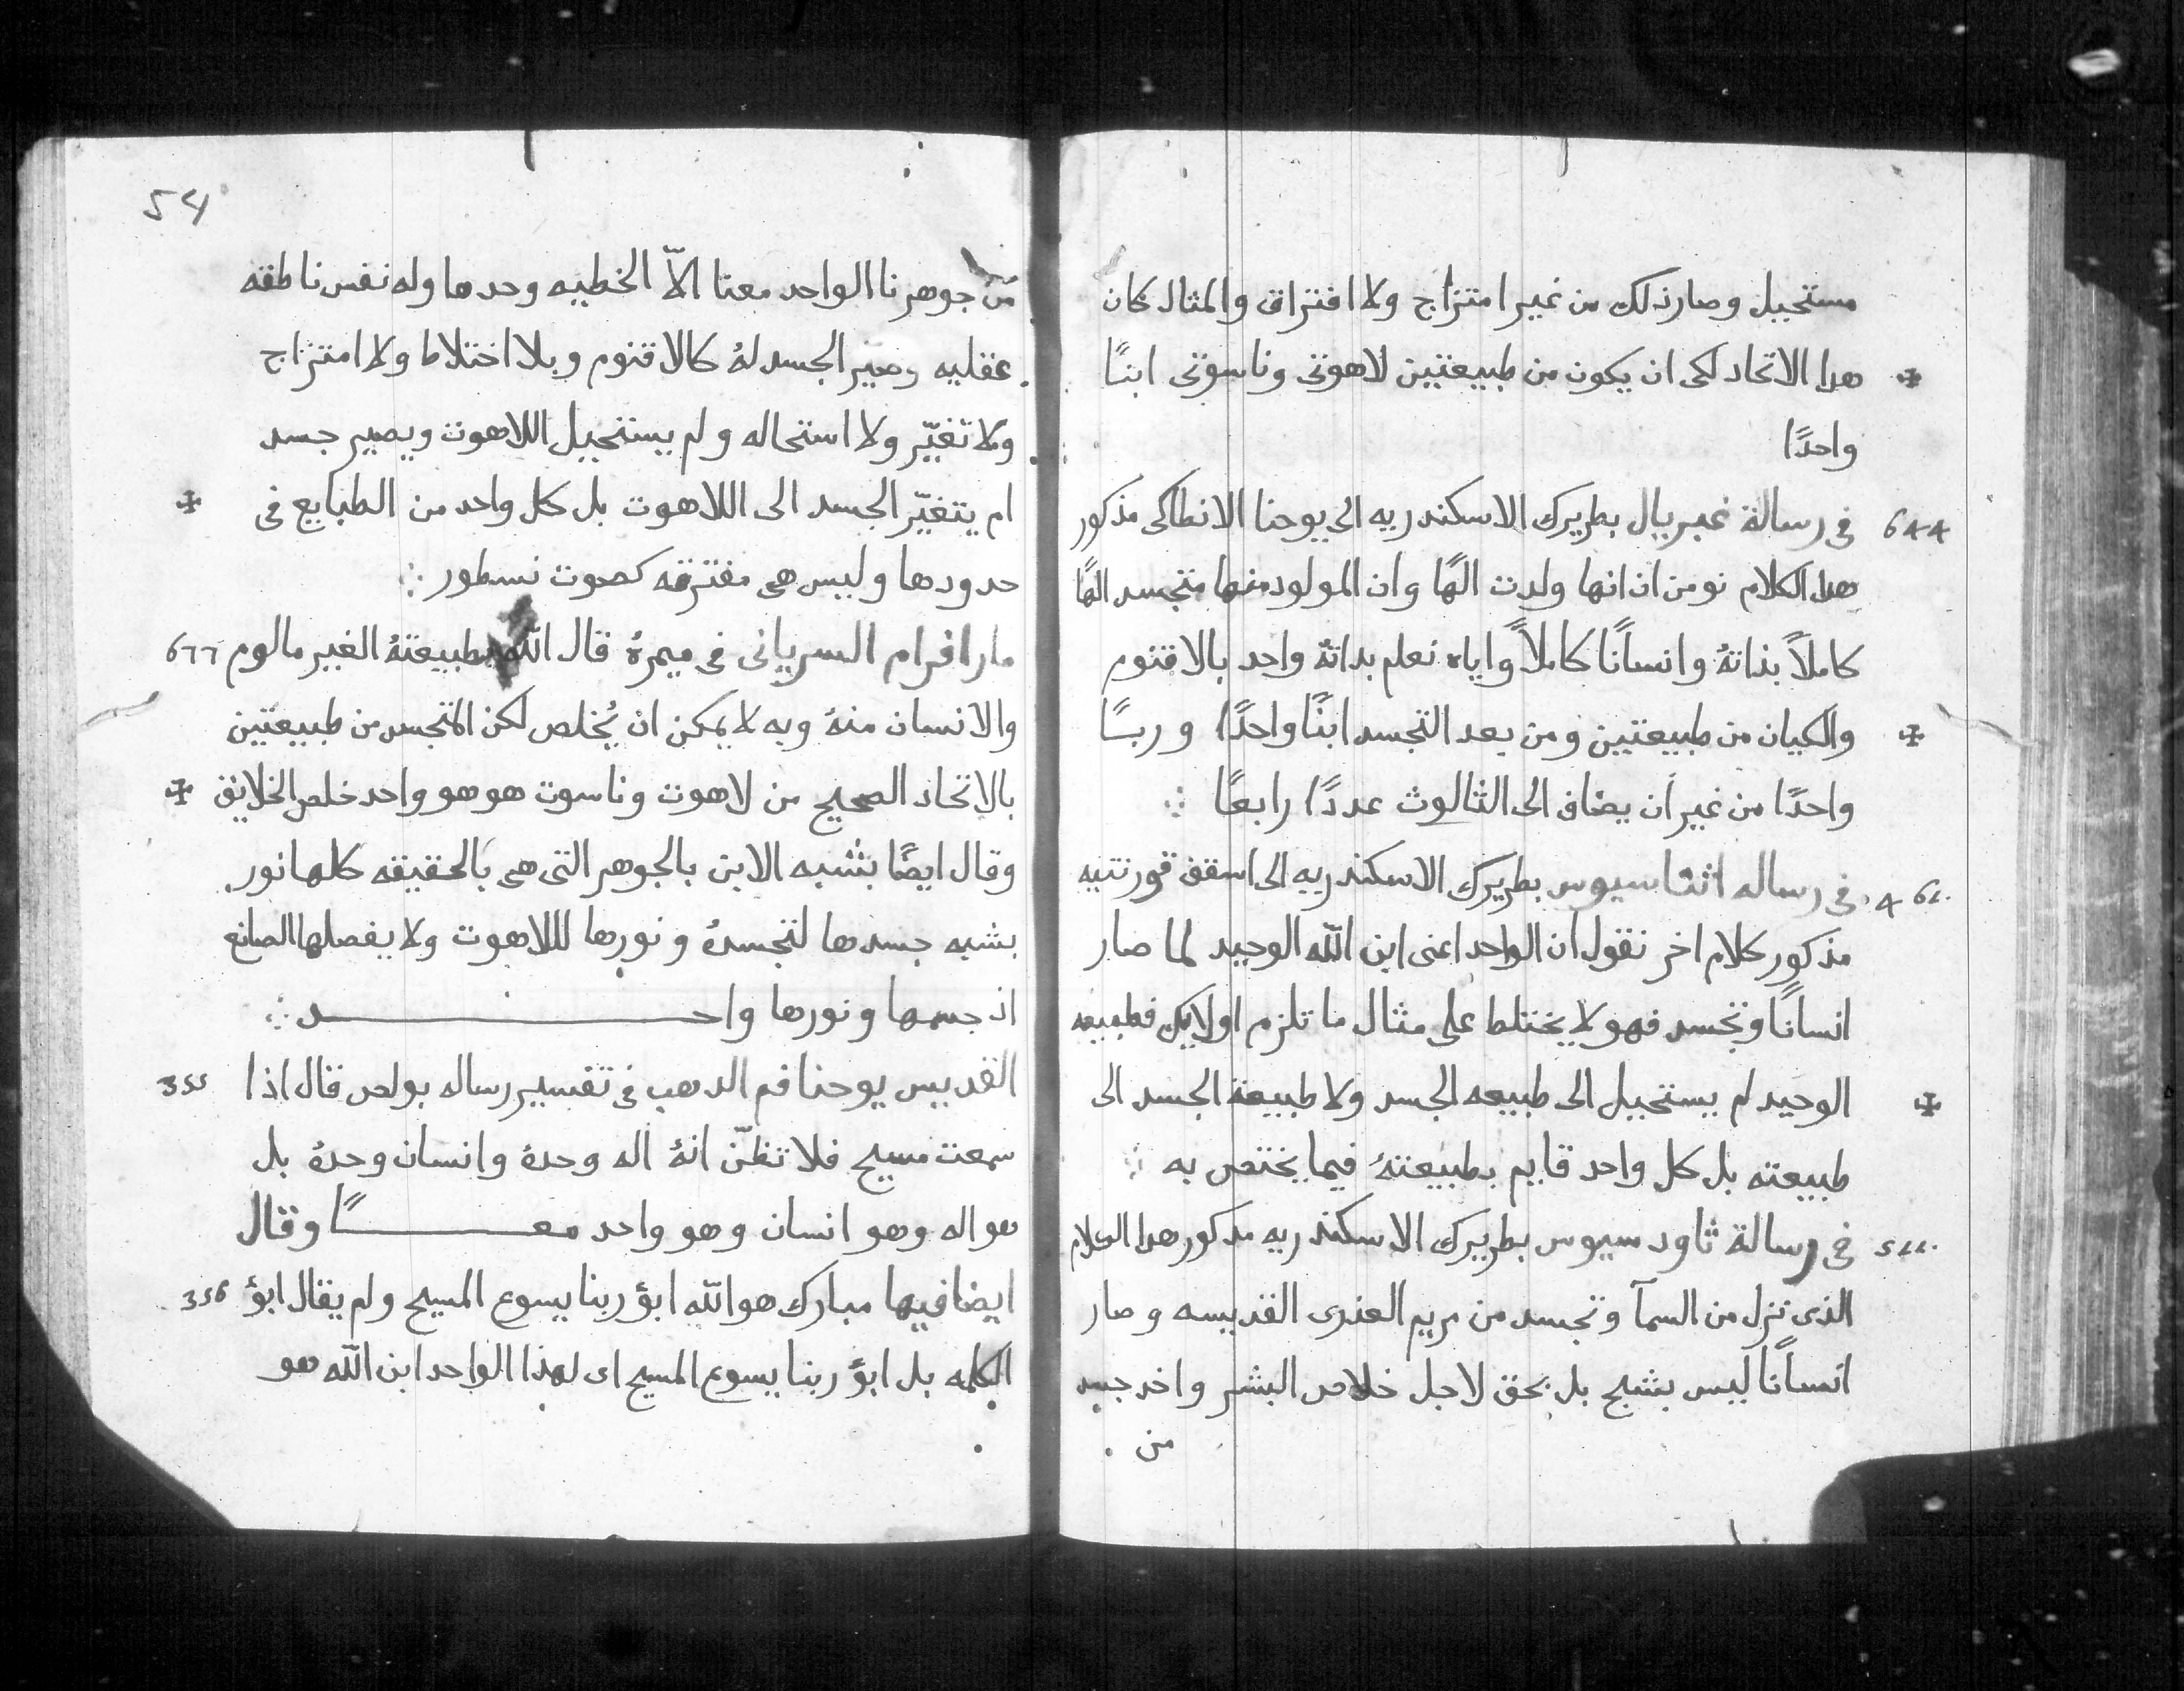 مستحيل وصار ذلك من غير امتزاج ولا افتراق والمثال كان
هدا الاتحاد لكى ان يكون من طبيعتين لاهوتى وناسوتى ابنًا
واحدًا
فى رسالة غبريال بطريرك الاسكندريه الى يوحنا الانطاكى مذكور
هدا الكلام نومن ان انها ولدت الهًا وان المولود منها متجسد الهًا
كاملاً بذاتهُ وانسانًا كاملاً واياه نعلم بداتهُ واحد بالاقنوم
والكيان من طبيعتين ومن بعد التجسد ابنًا واحدًا وربًا
واحدًا من غير ان يضاف الى الثالوث عددًا رابعًا
فى رساله اثناسيوس بطريرك الاسكندريه الى اسقف قورنتيه
مذكور كلام اخر نقول ان الواحد اعنى ابن الله الوحيد لما صار
انسانًا وتجسد فهو لا يختلط على مثال ما تلزم اولايك فطبيعه
الوحيد لم يستحيل الى طبيعه الجسد ولا طبيعة الجسد الى
طبيعته بل كل واحد قايم بطبيعتهُ فيما يختص به
فى رسالة تاودسيوس بطريرك الاسكندريه مدكور هدا الكلام
الذى نزل من السمآ وتجسد من مريم العذرى القديسه وصار
انسانًا ليس بشبح بل بحق لاجل خلاص البشر واخد جسد
من
54
من جوهرنا الواحد معنا الاّ الخطيه وحدها وله نفس ناطقه
عقليه وصير الجسد لهُ كالاقنوم وبلا اختلاط ولا امتزاج
ولا تغيّر ولا استحاله ولم يستحيل اللاهوت ويصير جسد
ام يتغيّر الجسد الى اللاهوت بل كل واحد من الطبايع فى
حدودها وليس هى مفترقه كصوت نسطور
مار افرام السريانى فى ميمرهُ قال الله بطبيعتهُ الغير مالوم
والانسان منهُ وبه لا يمكن ان يُخلص لكن المتجسد من طبيعتين
بالاتحاد الصحيح من لاهوت وناسوت هو هو واحد خلص الخلايق
وقال ايضًا بشبه الابن بالجوهر التى هى بالحقيقه كلها نور
بشبه جسدها لتجسدهُ ونورها لللاهوت ولا يفصلها الصانع
اذ جسمها ونورها واحـــد
القديس يوحنا فم الدهب فى تفسير رساله بولص قال اذا
355
سمعت مسيح فلا تظنّ انهُ اله وحدهُ وانسان وحدهُ بل
هو اله وهو انسان وهو واحد معـــًا وقال
ايضا فيها مبارك هو الله ابوُ ربنا يسوع المسيح ولم يقال ابوُ
356
الكلمه بل ابوُ ربنا يسوع المسيح اى لهذا الواحد ابن الله هو